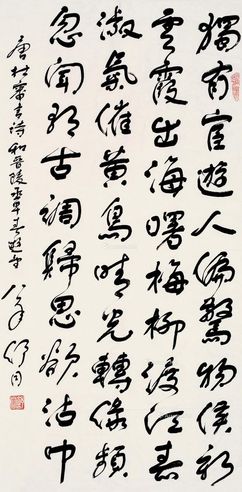 獨有宦遊人偏驚物候新
雲霞出海曙梅柳渡江春
淑氣催黃鳥晴光轉綠蘋
忽聞歌古調歸思欲沾巾
唐杜審言詩和晉陵丞早春遊望
舒同